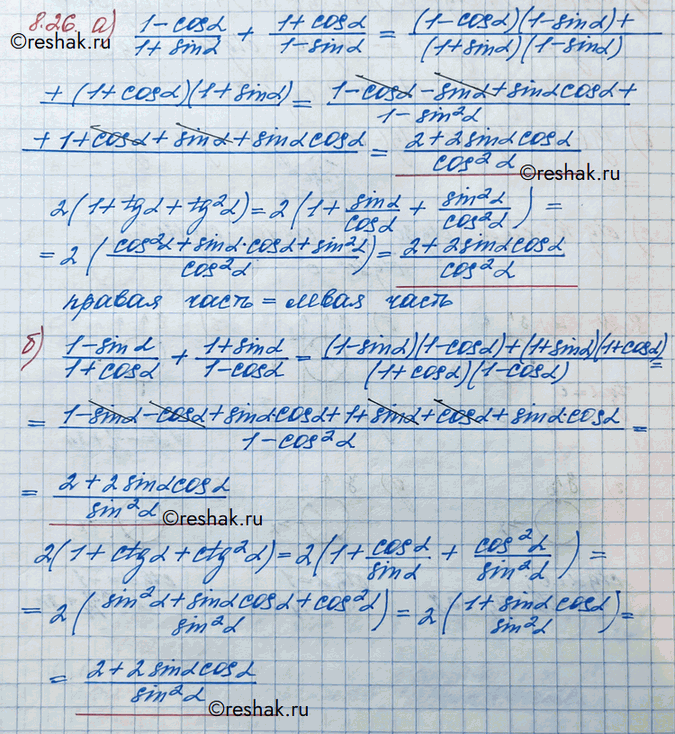 8.26 а) (1-cosα)/(1+sinα) + (1+cosα)/(1-sinα) = ((1-cosα)(1-sinα)+)/((1+sinα)(1-sinα))
©reshak.ru
+ (1+cosα)(1+sinα) = (1-cosα-sinα+sinαcosα+)/(1-sin²α)
+ 1+cosα+sinα+sinαcosα = (2+2sinαcosα)/(cos²α)
©reshak.ru
2(1+tgα+tg²α) = 2(1+ sinα/cosα + sin²α/cos²α) =
= 2((cos²α+sinα·cosα+sin²α)/(cos²α)) = (2+2sinαcosα)/(cos²α)
правая часть = левая часть
б) (1-sinα)/(1+cosα) + (1+sinα)/(1-cosα) = ((1-sinα)(1-cosα)+(1+sinα)(1+cosα))/((1+cosα)(1-cosα)) =
= (1-sinα-cosα+sinα·cosα+1+sinα+cosα+sinα·cosα)/(1-cos²α) =
= (2+2sinαcosα)/(sin²α)
©reshak.ru
2(1+ctgα+ctg²α) = 2(1+ cosα/sinα + cos²α/sin²α) =
= 2((sin²α+sinαcosα+cos²α)/(sin²α)) = 2((1+sinαcosα)/(sin²α)) =
= (2+2sinαcosα)/(sin²α)
©reshak.ru